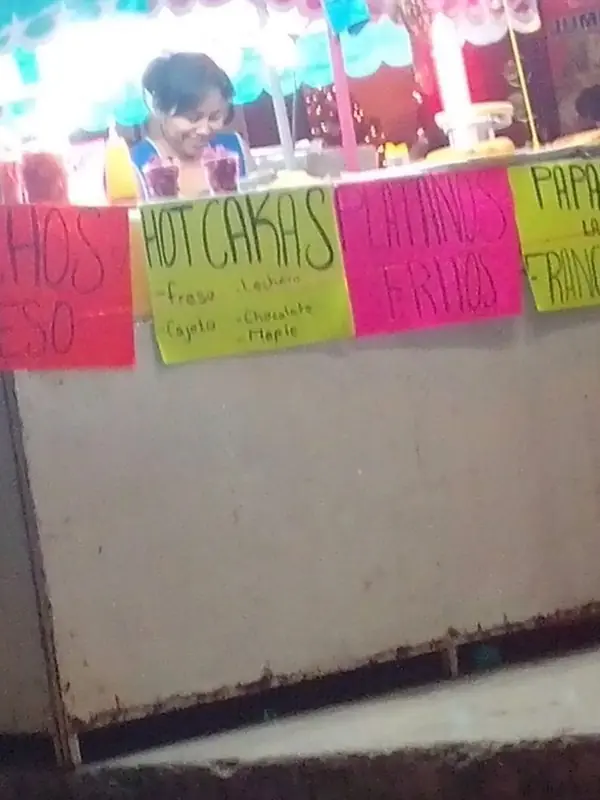 HOS
ESO
HOT CAKAS
-fresa
-Lechera
-Cajeta
-Chocolate
-Maple
PLATANOS
FRITOS
PAPA
LA
FRANC
JUM